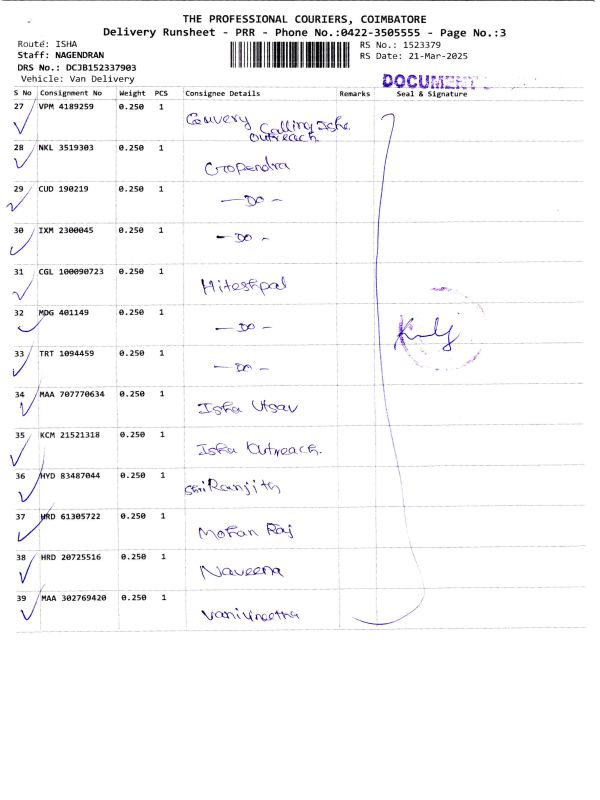 THE PROFESSIONAL COURIERS, COIMBATORE
Delivery Runsheet - PRR - Phone No.:0422-3505555 - Page No.:3
Route: ISHA
RS No.: 1523379
Staff: NAGENDRAN
RS Date: 21-Mar-2025
DRS No.: DCJB152337903
Vehicle: Van Delivery
DOCUMENT
S No Consignment No Weight PCS Consignee Details Remarks Seal & Signature
27 VPM 4189259 0.250 1 Cauvery Calling Isha
Outreach
28 NKL 3519303 0.250 1 Gropendra
29 CUD 190219 0.250 1 - DO -
30 IXM 2300045 0.250 1 - DO -
31 CGL 100090723 0.250 1 Hiteshpal
32 MDG 401149 0.250 1 - DO -
33 TRT 1094459 0.250 1 - DO -
34 MAA 707770634 0.250 1 Isha Utsav
35 KCM 21521318 0.250 1 Isha Outreach.
36 HYD 83487044 0.250 1 Sri Ranjith
37 HRD 61305722 0.250 1 Mohan Raj
38 HRD 20725516 0.250 1 Naveena
39 MAA 302769420 0.250 1